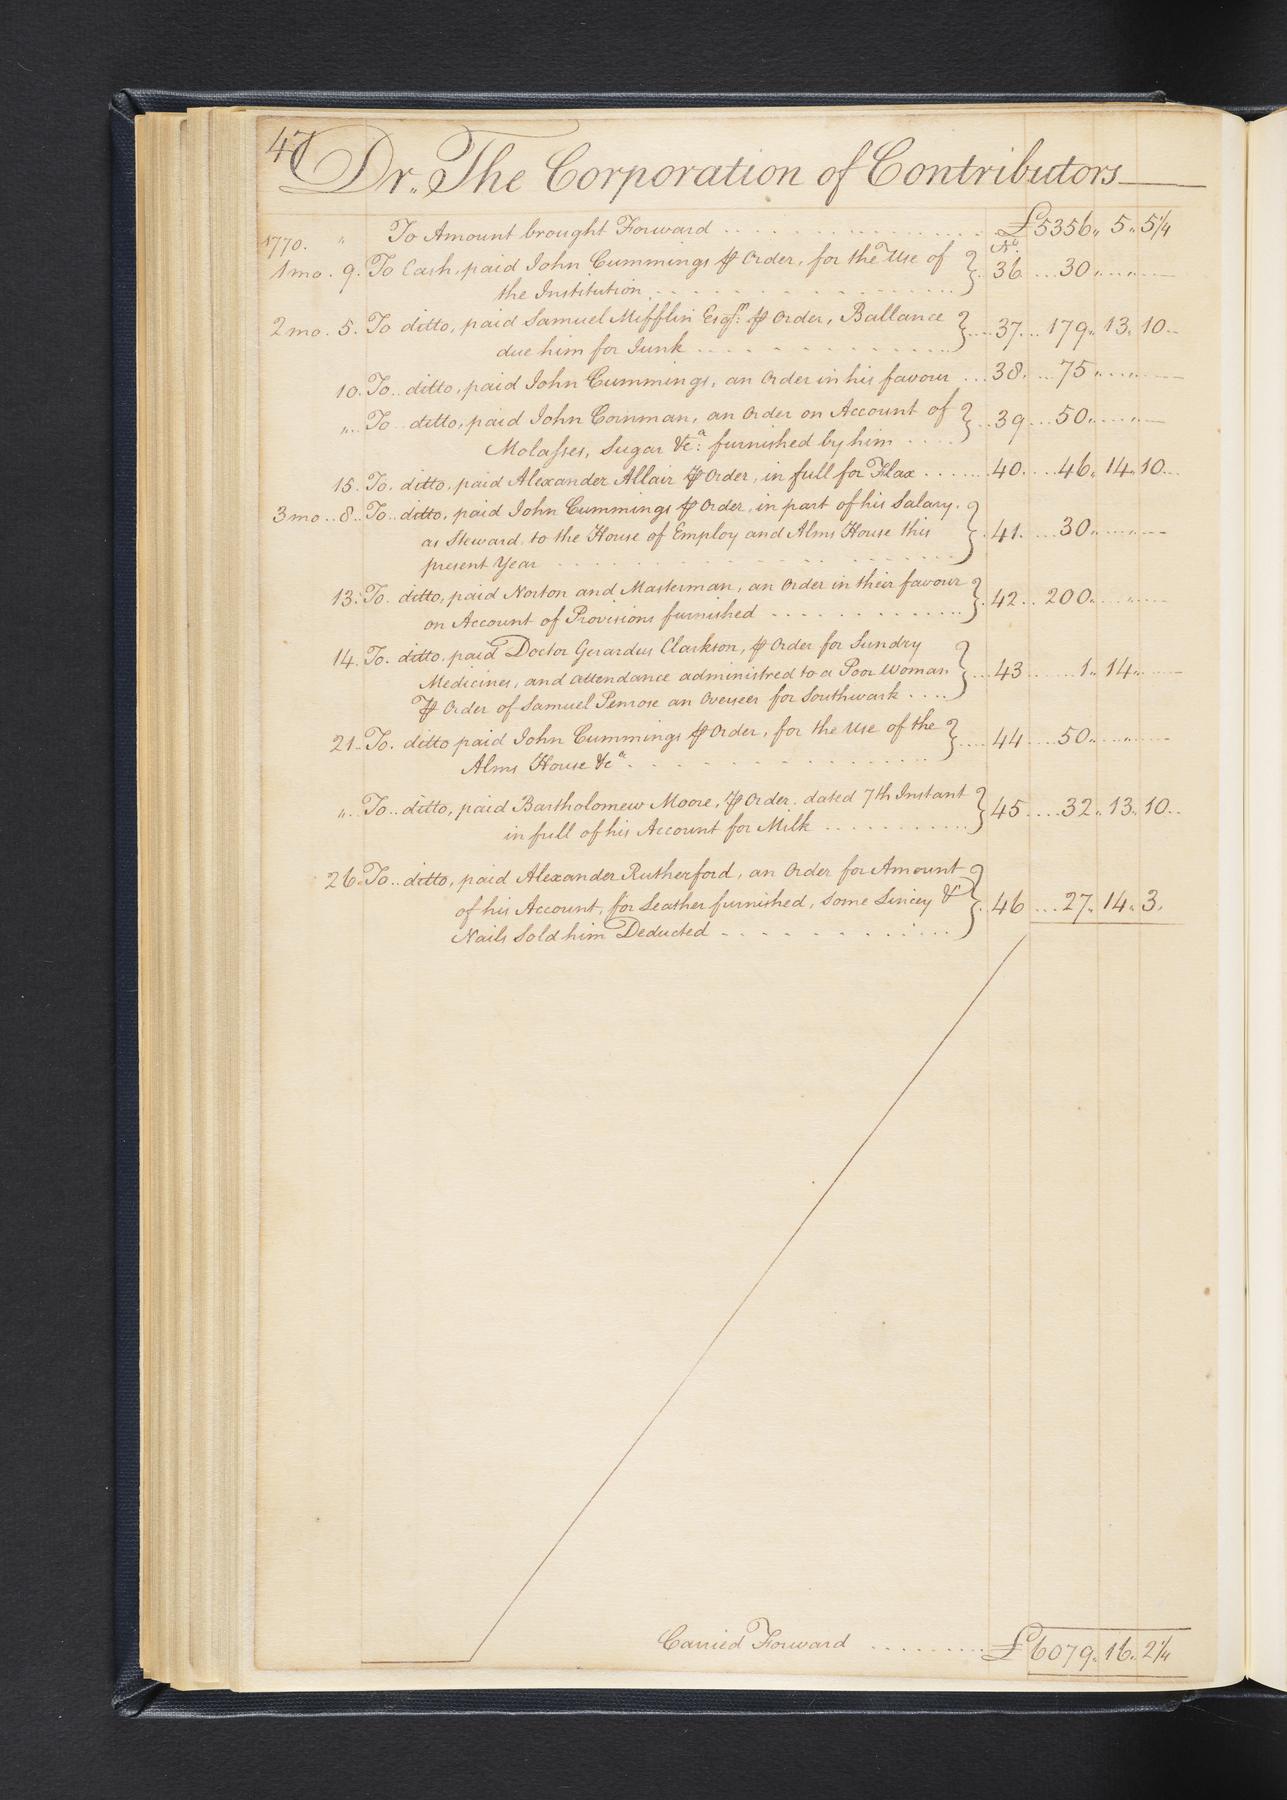 47
Dr. The Corporation of Contributors
1770. " To Amount brought Forward . . . £5356,, 5,, 5¼
No.
1 mo. 9. To Cash, paid John Cummings ⅌ Order, for the Use of
the Institution . . . 36 . . . 30 ,, — ,, —
2 mo. 5. To ditto, paid Samuel Mifflin Esqr. ⅌ Order, Ballance
due him for Junk . . . 37 . . . 179,, 13,, 10
10. To ditto, paid John Cummings, an Order in his favour . . . 38 . . . 75 ,, — ,, —
,, To ditto, paid John Cornman, an Order on Account of
Molasses, Sugar &ca: furnished by him . . . 39 . . . 50 ,, — ,, —
15. To ditto, paid Alexander Allair ⅌ Order, in full for Flax . . . 40 . . . 46,, 14,, 10
3 mo. 8. To ditto, paid John Cummings ⅌ Order, in part of his Salary,
as Steward, to the House of Employ and Alms House this
present Year . . . 41 . . . 30 ,, — ,, —
13. To ditto, paid Norton and Masterman, an Order in their favour
on Account of Provisions furnished . . . 42 . . . 200 ,, — ,, —
14. To ditto, paid Doctor Gerardus Clarkson, ⅌ Order for Sundry
Medicines, and attendance administred to a Poor Woman
⅌ Order of Samuel Penrose an Overseer for Southwark . . . 43 . . . 1,, 14,, —
21. To ditto paid John Cummings ⅌ Order, for the Use of the
Alms House &ca . . . 44 . . . 50 ,, — ,, —
,, To ditto, paid Bartholomew Moore, ⅌ Order dated 7th Instant
in full of his Account for Milk . . . 45 . . . 32,, 13,, 10
26. To ditto, paid Alexander Rutherford, an Order for Amount
of his Account, for Leather furnished, some Lincey &
Nails Sold him Deducted . . . 46 . . . 27,, 14,, 3
Carried Forward . . . £6079,, 16,, 2¼